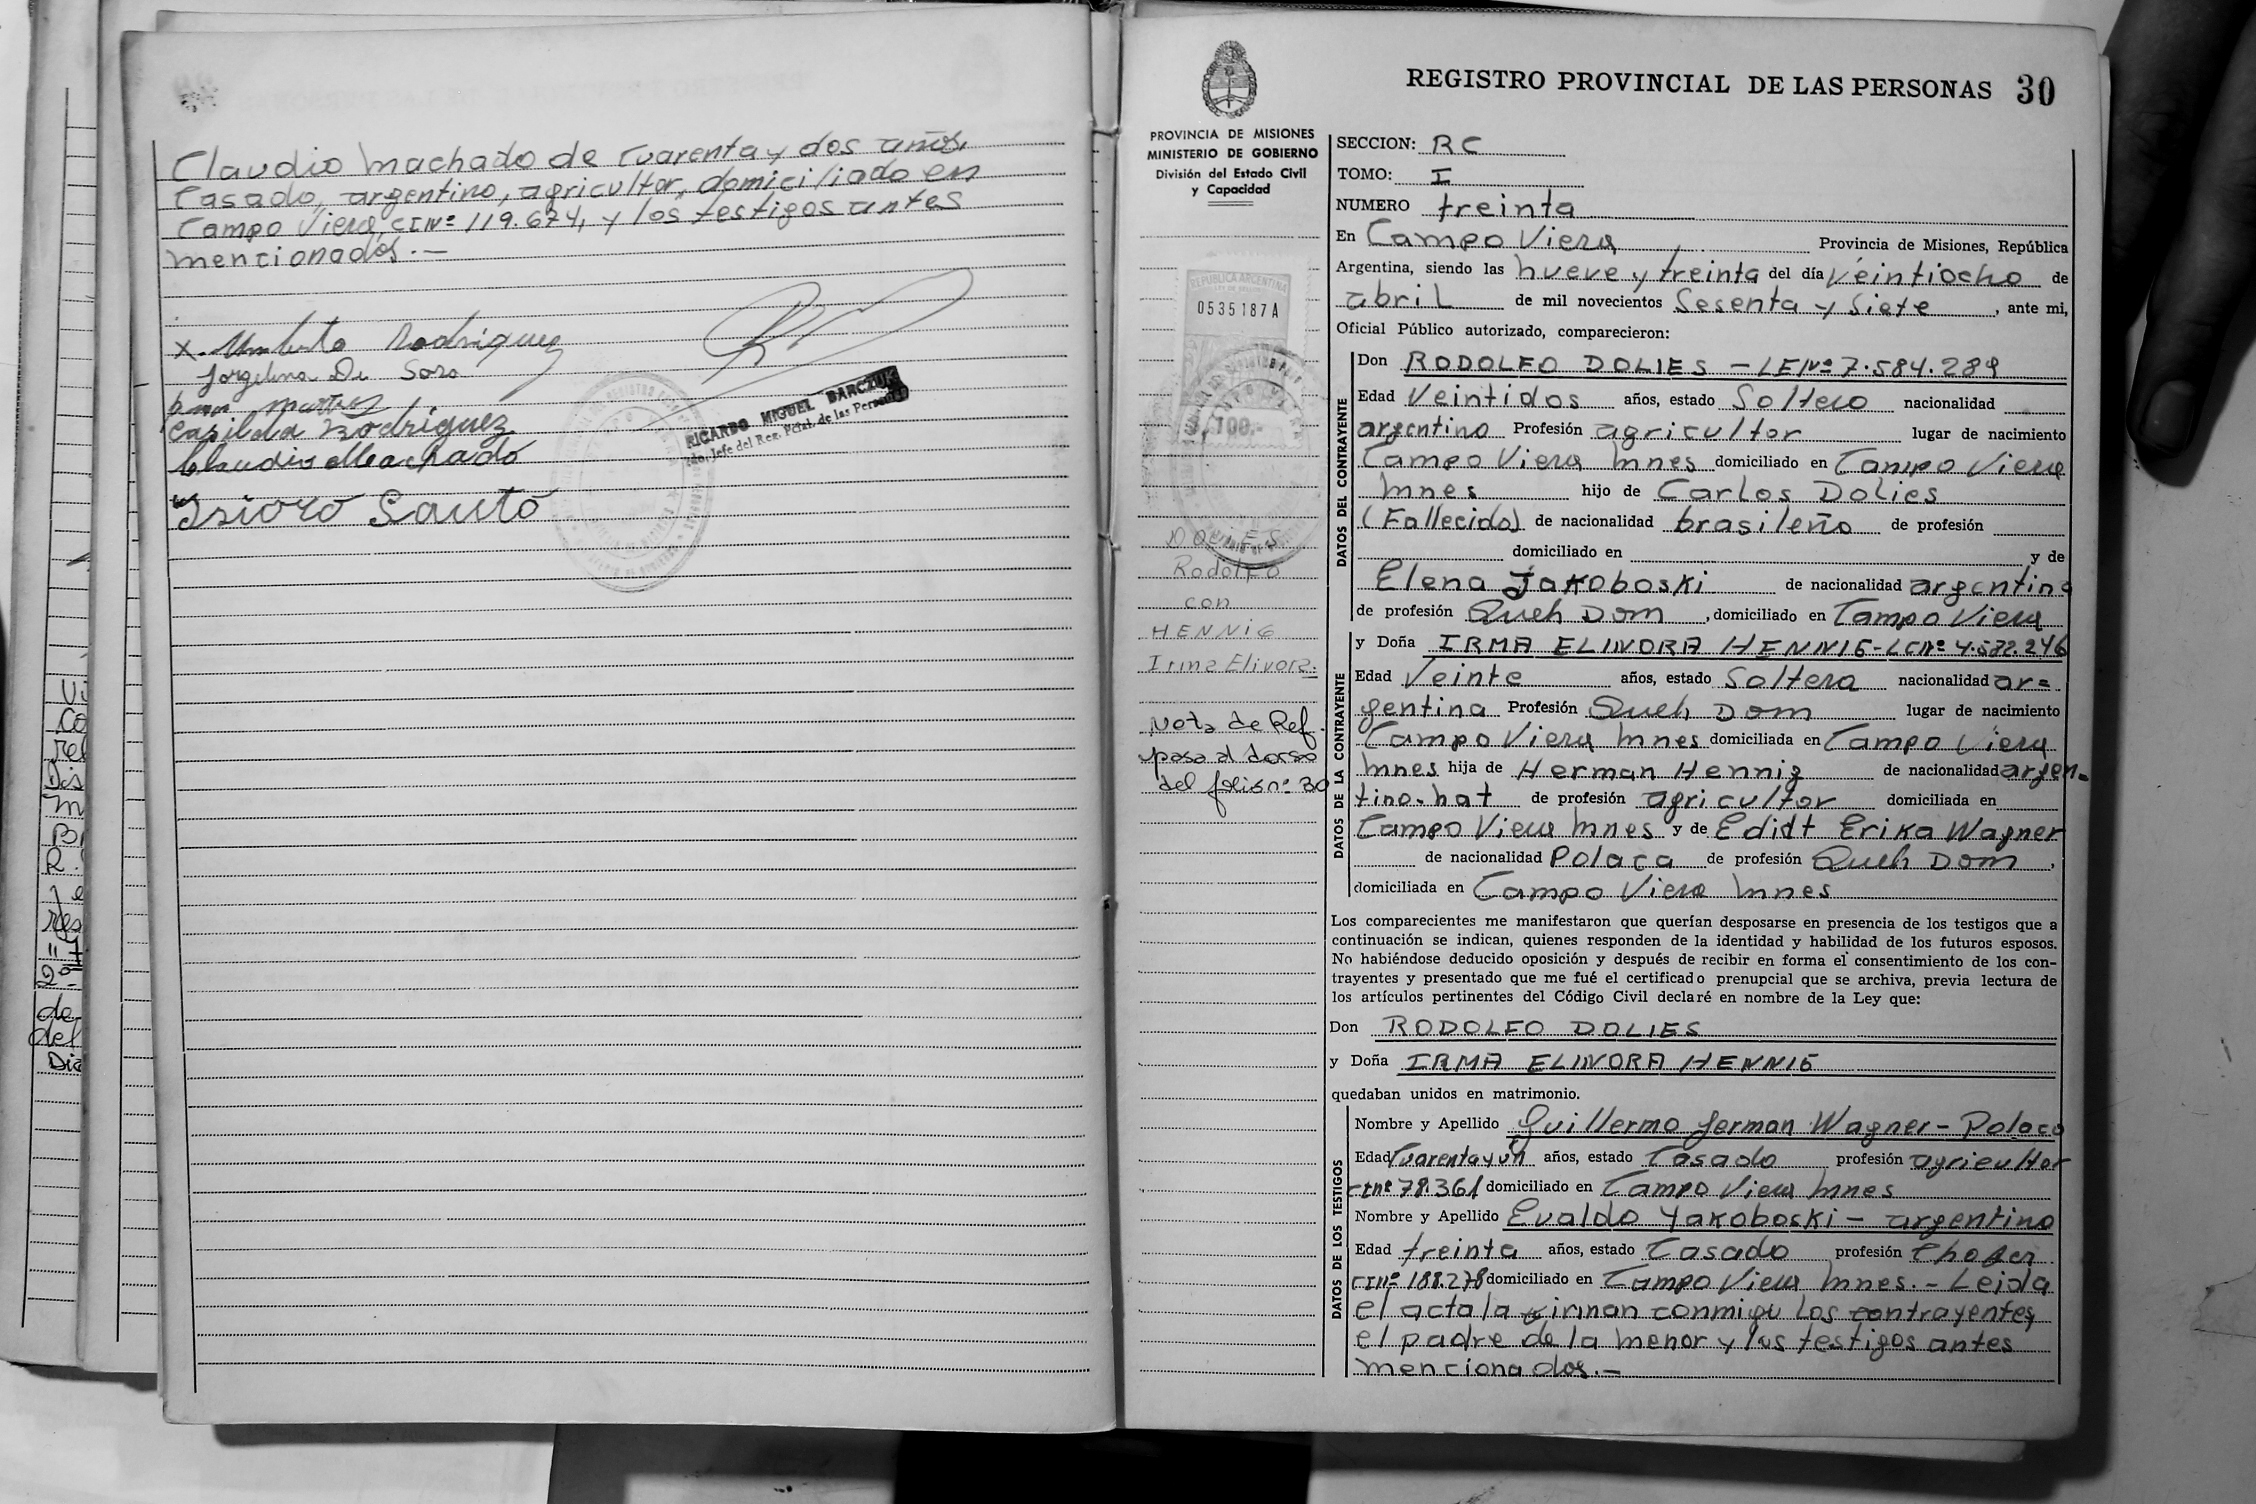 Claudio Machado de Cuarenta y dos años,
Casado, argentino, agricultor, domiciliado en
Campo Viera, CI Nº 119.674, y los testigos antes
mencionados.—
x. Umberto Rodriguez
Jorgelina De Soso
Casilda Rodriguez
Claudio Machado
Isioro Sauto
RICARDO MIGUEL BARCZUK
Jefe del Reg. Pcial. de las Personas
REGISTRO PROVINCIAL DE LAS PERSONAS 30
PROVINCIA DE MISIONES
MINISTERIO DE GOBIERNO
División del Estado Civil
y Capacidad
REPUBLICA ARGENTINA
0535187A
100.-
DOLIES
Rodolfo
con
HENNIG
Irma Elivora.
Nota de Ref.
pasa al dorso
del folio nº 30
SECCION: RC
TOMO: I
NUMERO treinta
En Campo Viera, Provincia de Misiones, República
Argentina, siendo las nueve y treinta del día Veintiocho de
abril de mil novecientos Sesenta y Siete, ante mi,
Oficial Público autorizado, comparecieron:
DATOS DEL CONTRAYENTE
Don RODOLFO DOLIES — LE Nº 7.584.289
Edad Veintidos años, estado Soltero nacionalidad
argentino Profesión agricultor lugar de nacimiento
Campo Viera Mnes domiciliado en Campo Viera
Mnes hijo de Carlos Dolies
(Fallecido) de nacionalidad brasileño de profesión
domiciliado en y de
Elena Jakoboski de nacionalidad argentina
de profesión Queh Dom, domiciliado en Campo Viera
DATOS DE LA CONTRAYENTE
y Doña IRMA ELINORA HENNIG - LC Nº 4.582.246
Edad Veinte años, estado Soltera nacionalidad ar=
gentina Profesión Queh Dom lugar de nacimiento
Campo Viera Mnes domiciliada en Campo Viera
Mnes hija de Herman Hennig de nacionalidad argen-
tino. nat de profesión agricultor domiciliada en
Campo Viera Mnes y de Edidt Erika Wagner
de nacionalidad Polaca de profesión Queh Dom,
domiciliada en Campo Viera Mnes
Los comparecientes me manifestaron que querían desposarse en presencia de los testigos que a
continuación se indican, quienes responden de la identidad y habilidad de los futuros esposos.
No habiéndose deducido oposición y después de recibir en forma el consentimiento de los con-
trayentes y presentado que me fué el certificado prenupcial que se archiva, previa lectura de
los artículos pertinentes del Código Civil declaré en nombre de la Ley que:
Don RODOLFO DOLIES
y Doña IRMA ELINORA HENNIG
quedaban unidos en matrimonio.
DATOS DE LOS TESTIGOS
Nombre y Apellido Guillermo German Wagner - Polaco
Edad Cuarenta y un años, estado Casado profesión agricultor
CI nº 78.361 domiciliado en Campo Viera Mnes
Nombre y Apellido Evaldo Yakoboski — argentino
Edad treinta años, estado Casado profesión Chofer
CI Nº 188.278 domiciliado en Campo Viera Mnes.— Leida
el acta la firman conmigo los contrayentes,
el padre de la menor y los testigos antes
mencionados.—